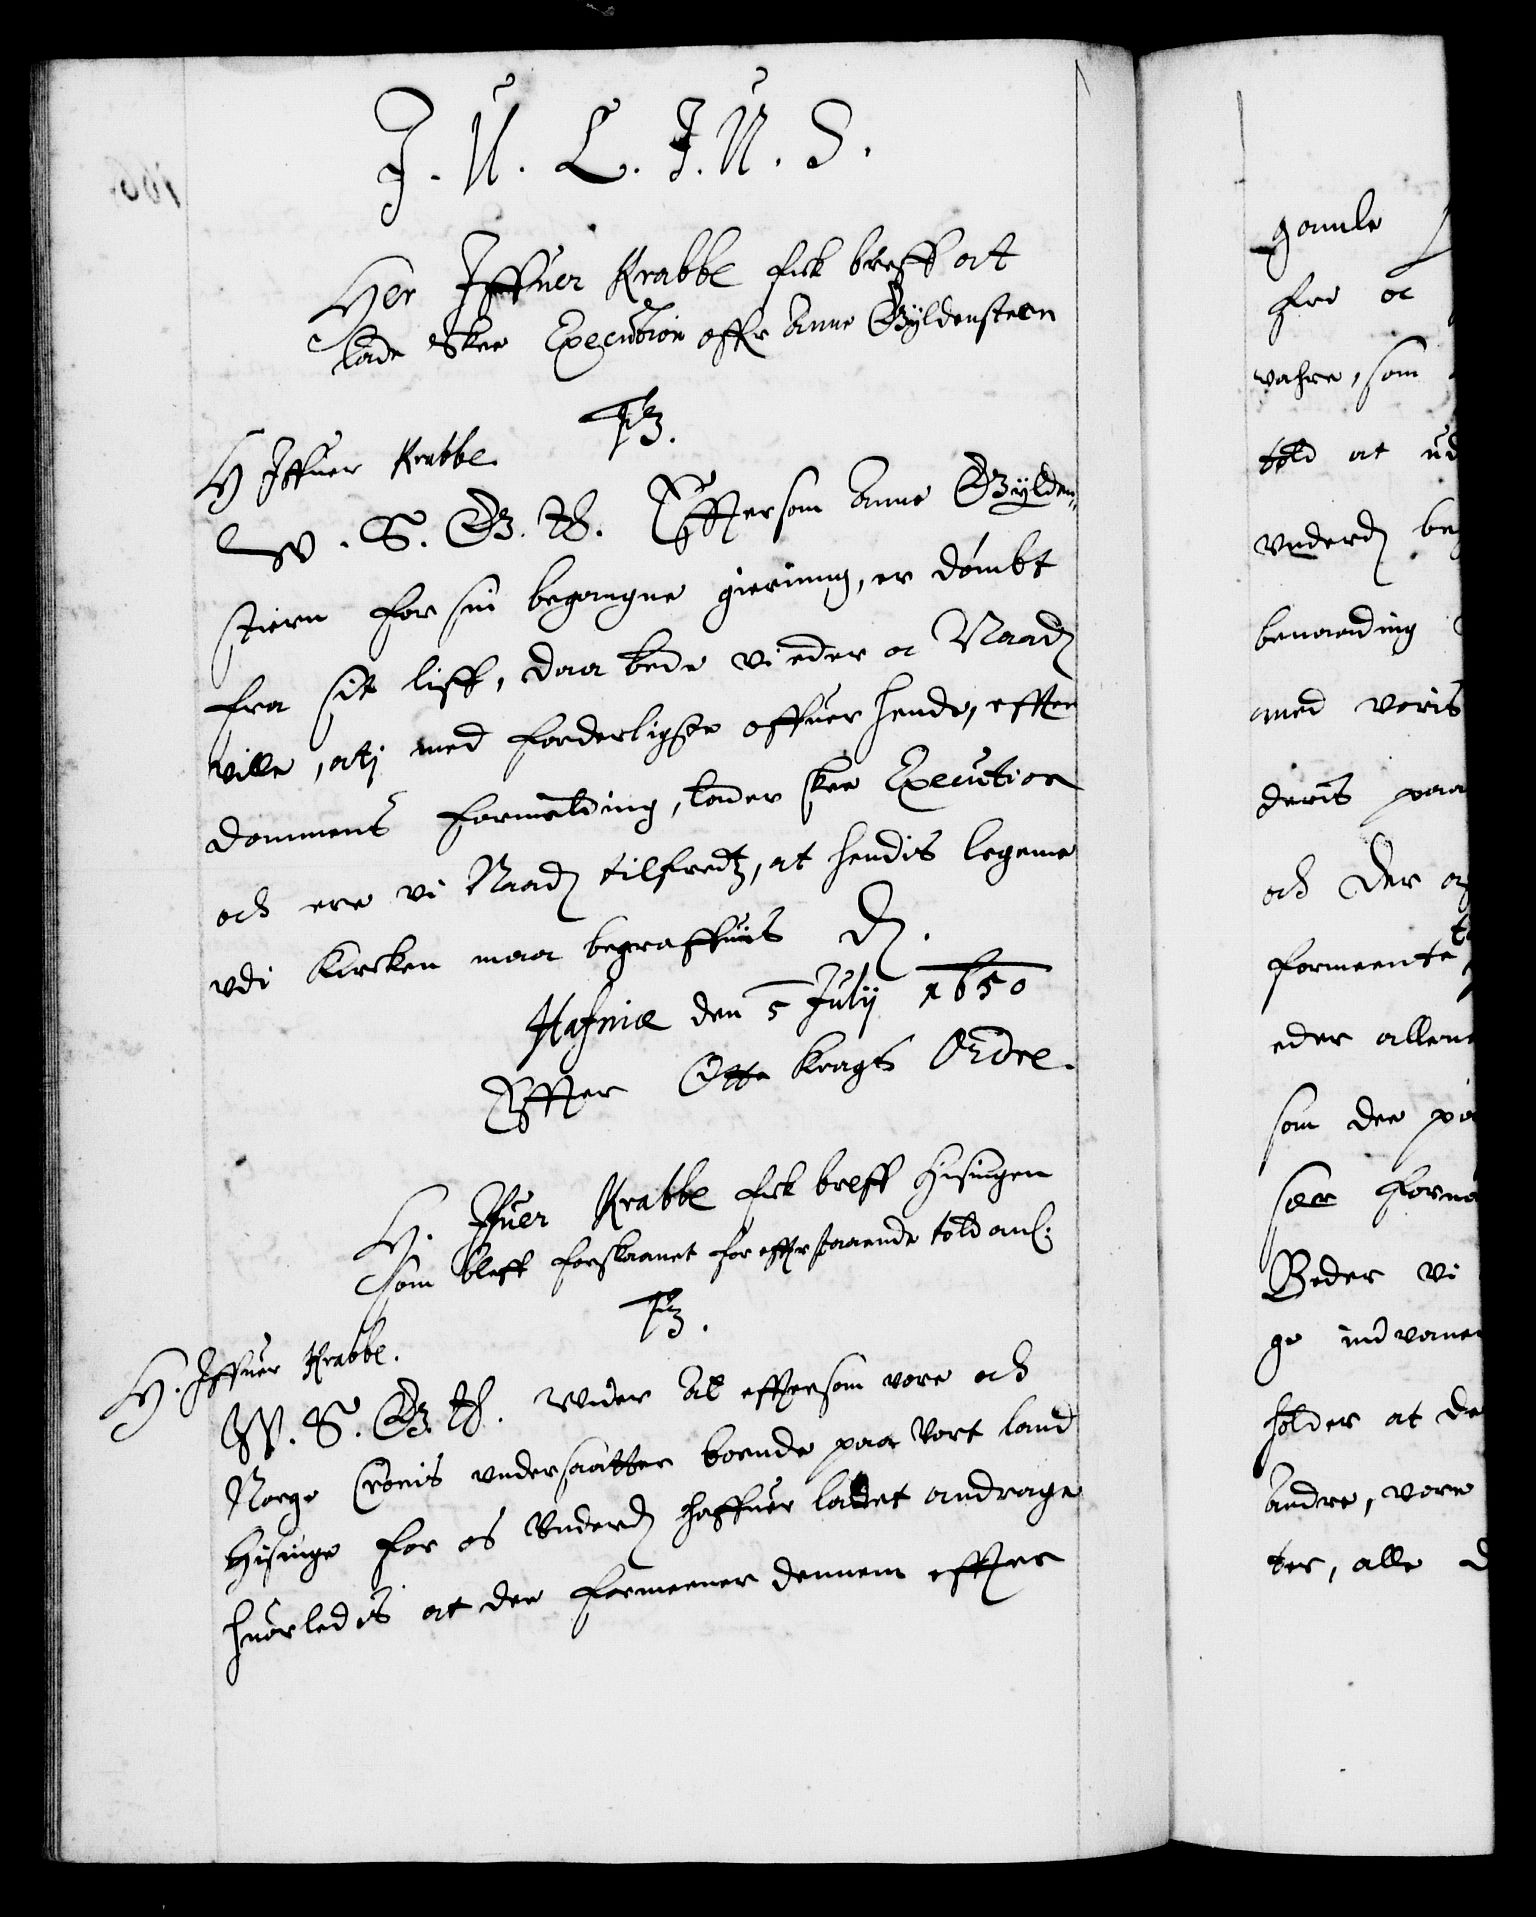 J. U. L. J. U. S.
Her Iffuer Krabbe fick breff at
lade skee Execution offr Anne Gyldensteen
F3.
H Iffuer Krabbe
W. S. G. T. Effersom Anne Gylden„
stiern for sin begangne gierning, er dømbt
fra sit liff, daa bede vi eder oc Naad
ville, at j med forderligste offuer hende, effter
dommens formelding, lader skee Execution
och ere vi Naad tilfredtz, at hendis legeme
vdi kircken maa begraffuis D.
Hafniæ den 5 Julij 1650
Effter Otte Kragts Ordre.
H. Ifuer Krabbe fick breff Hisingen
som bleff forskaanet for effterstaaende told anl:
F3.
H. Iffuer Krabbe.
W. S. G. T. Wider Al efftersom vore och
Norge Cronis vndersaatter boende paa Vort land
Hisinge for os Underd haffuer ladet andrage
huorledis at de formeener dennem effter
gamle
fri oc
vahre, som
told at ud
vnderd beg
benaading
med voris
deris paa
och der
formeente
eder allene
som de
ser form
Beder vi
ge ind vaane
holder at de
Andre, vore
ter, alle d